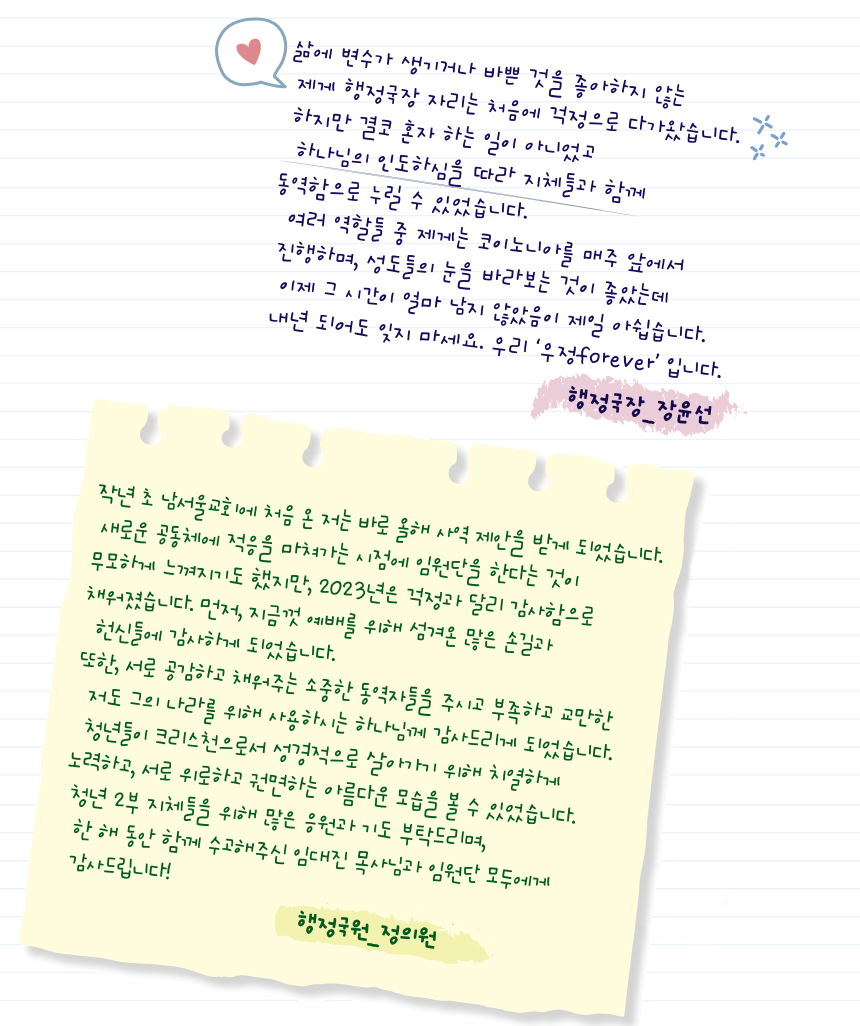 삶에 변수가 생기거나 바쁜 것을 좋아하지 않는
제게 행정국장 자리는 처음에 걱정으로 다가왔습니다.
하지만 결코 혼자 하는 일이 아니었고
하나님의 인도하심을 따라 지체들과 함께
동역함으로 누릴 수 있었습니다.
여러 역할들 중 제게는 코이노니아를 매주 앞에서
진행하며, 성도들의 눈을 바라보는 것이 좋았는데
이제 그 시간이 얼마 남지 않았음이 제일 아쉽습니다.
내년 되어도 잊지 마세요. 우리 ‘우정forever’ 입니다.
행정국장_장윤선
작년 초 남서울교회에 처음 온 저는 바로 올해 사역 제안을 받게 되었습니다.
새로운 공동체에 적응을 마쳐가는 시점에 임원단을 한다는 것이
무모하게 느껴지기도 했지만, 2023년은 걱정과 달리 감사함으로
채워졌습니다. 먼저, 지금껏 예배를 위해 섬겨온 많은 손길과
헌신들에 감사하게 되었습니다.
또한, 서로 공감하고 채워주는 소중한 동역자들을 주시고 부족하고 교만한
저도 그의 나라를 위해 사용하시는 하나님께 감사드리게 되었습니다.
청년들이 크리스천으로서 성경적으로 살아가기 위해 치열하게
노력하고, 서로 위로하고 권면하는 아름다운 모습을 볼 수 있었습니다.
청년 2부 지체들을 위해 많은 응원과 기도 부탁드리며,
한 해 동안 함께 수고해주신 임대진 목사님과 임원단 모두에게
감사드립니다!
행정국원_정의원